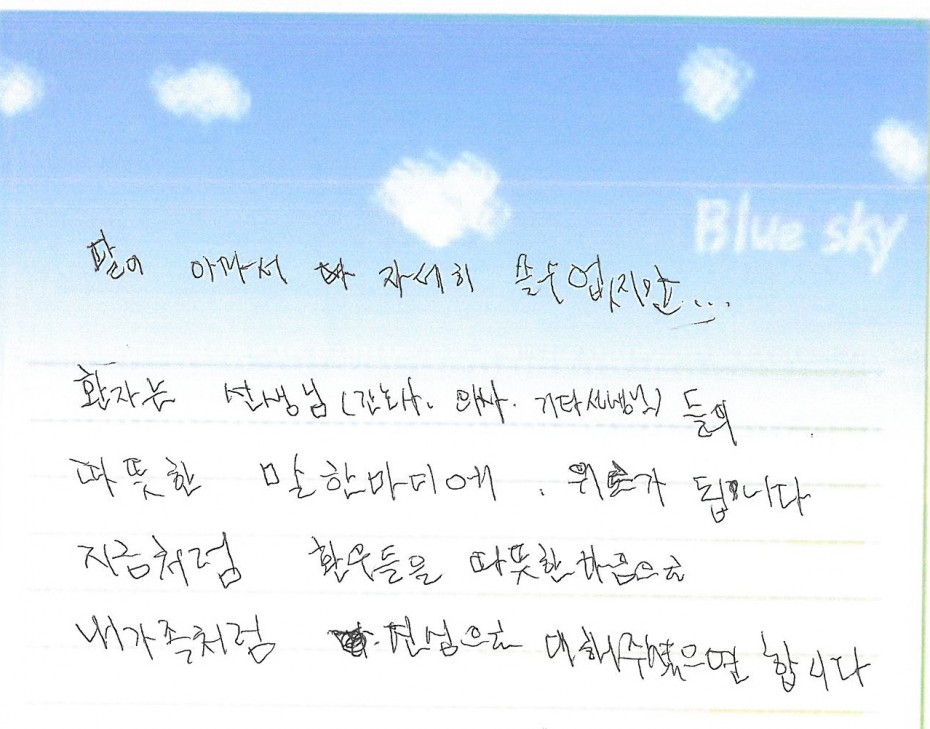 Blue sky
팔이 아파서 자세히 쓸수 없지만...
환자는 선생님(간호사. 의사. 기타선생님)들의
따뜻한 말한마디에. 위로가 됩니다
지금처럼 환우들을 따뜻한마음으로
내가족처럼 진심으로 대해주셨으면 합니다